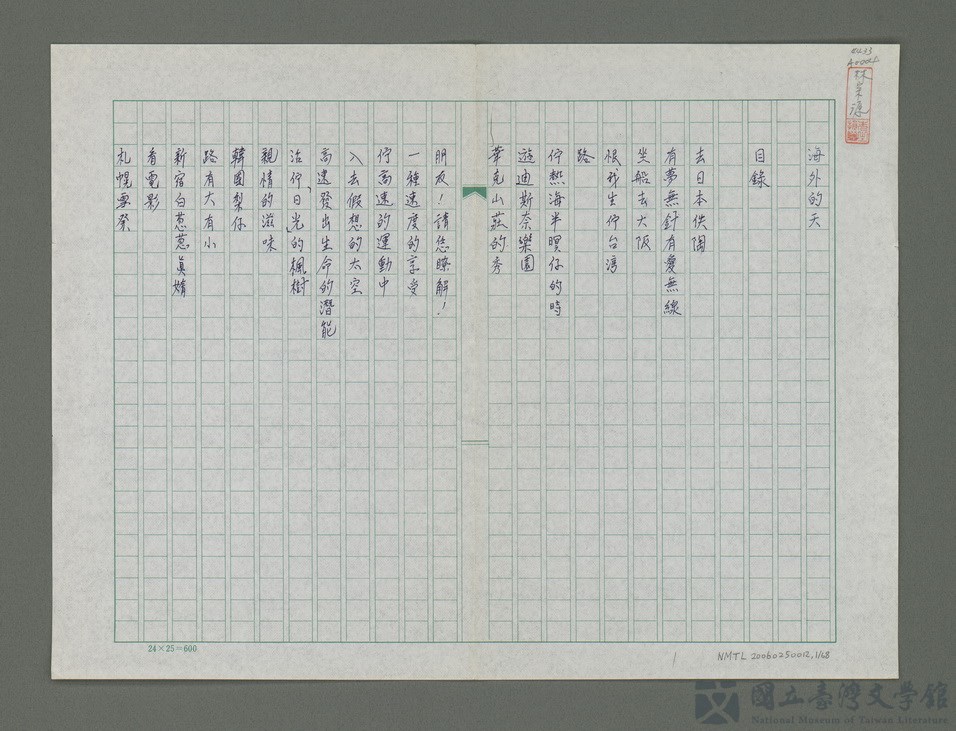 海外的天
目錄
去日本佚陶
有夢無針有愛無線
坐船去大阪
恨我生佇台灣
路
佇熱海半暝仔的時
遊迪斯奈樂園
華克山莊的秀
朋友！請您瞭解！
一種速度的享受
佇高速的運動中
入去假想的太空
高速發出生命的潛能
站佇日光的楓樹
親情的滋味
韓國梨仔
路有大有小
新宿白蔥蔥真媠
看電影
札幌票房
24×25=600
1
NMTL 20060250012,1/68
國立臺灣文學館
National Museum of Taiwan Literature